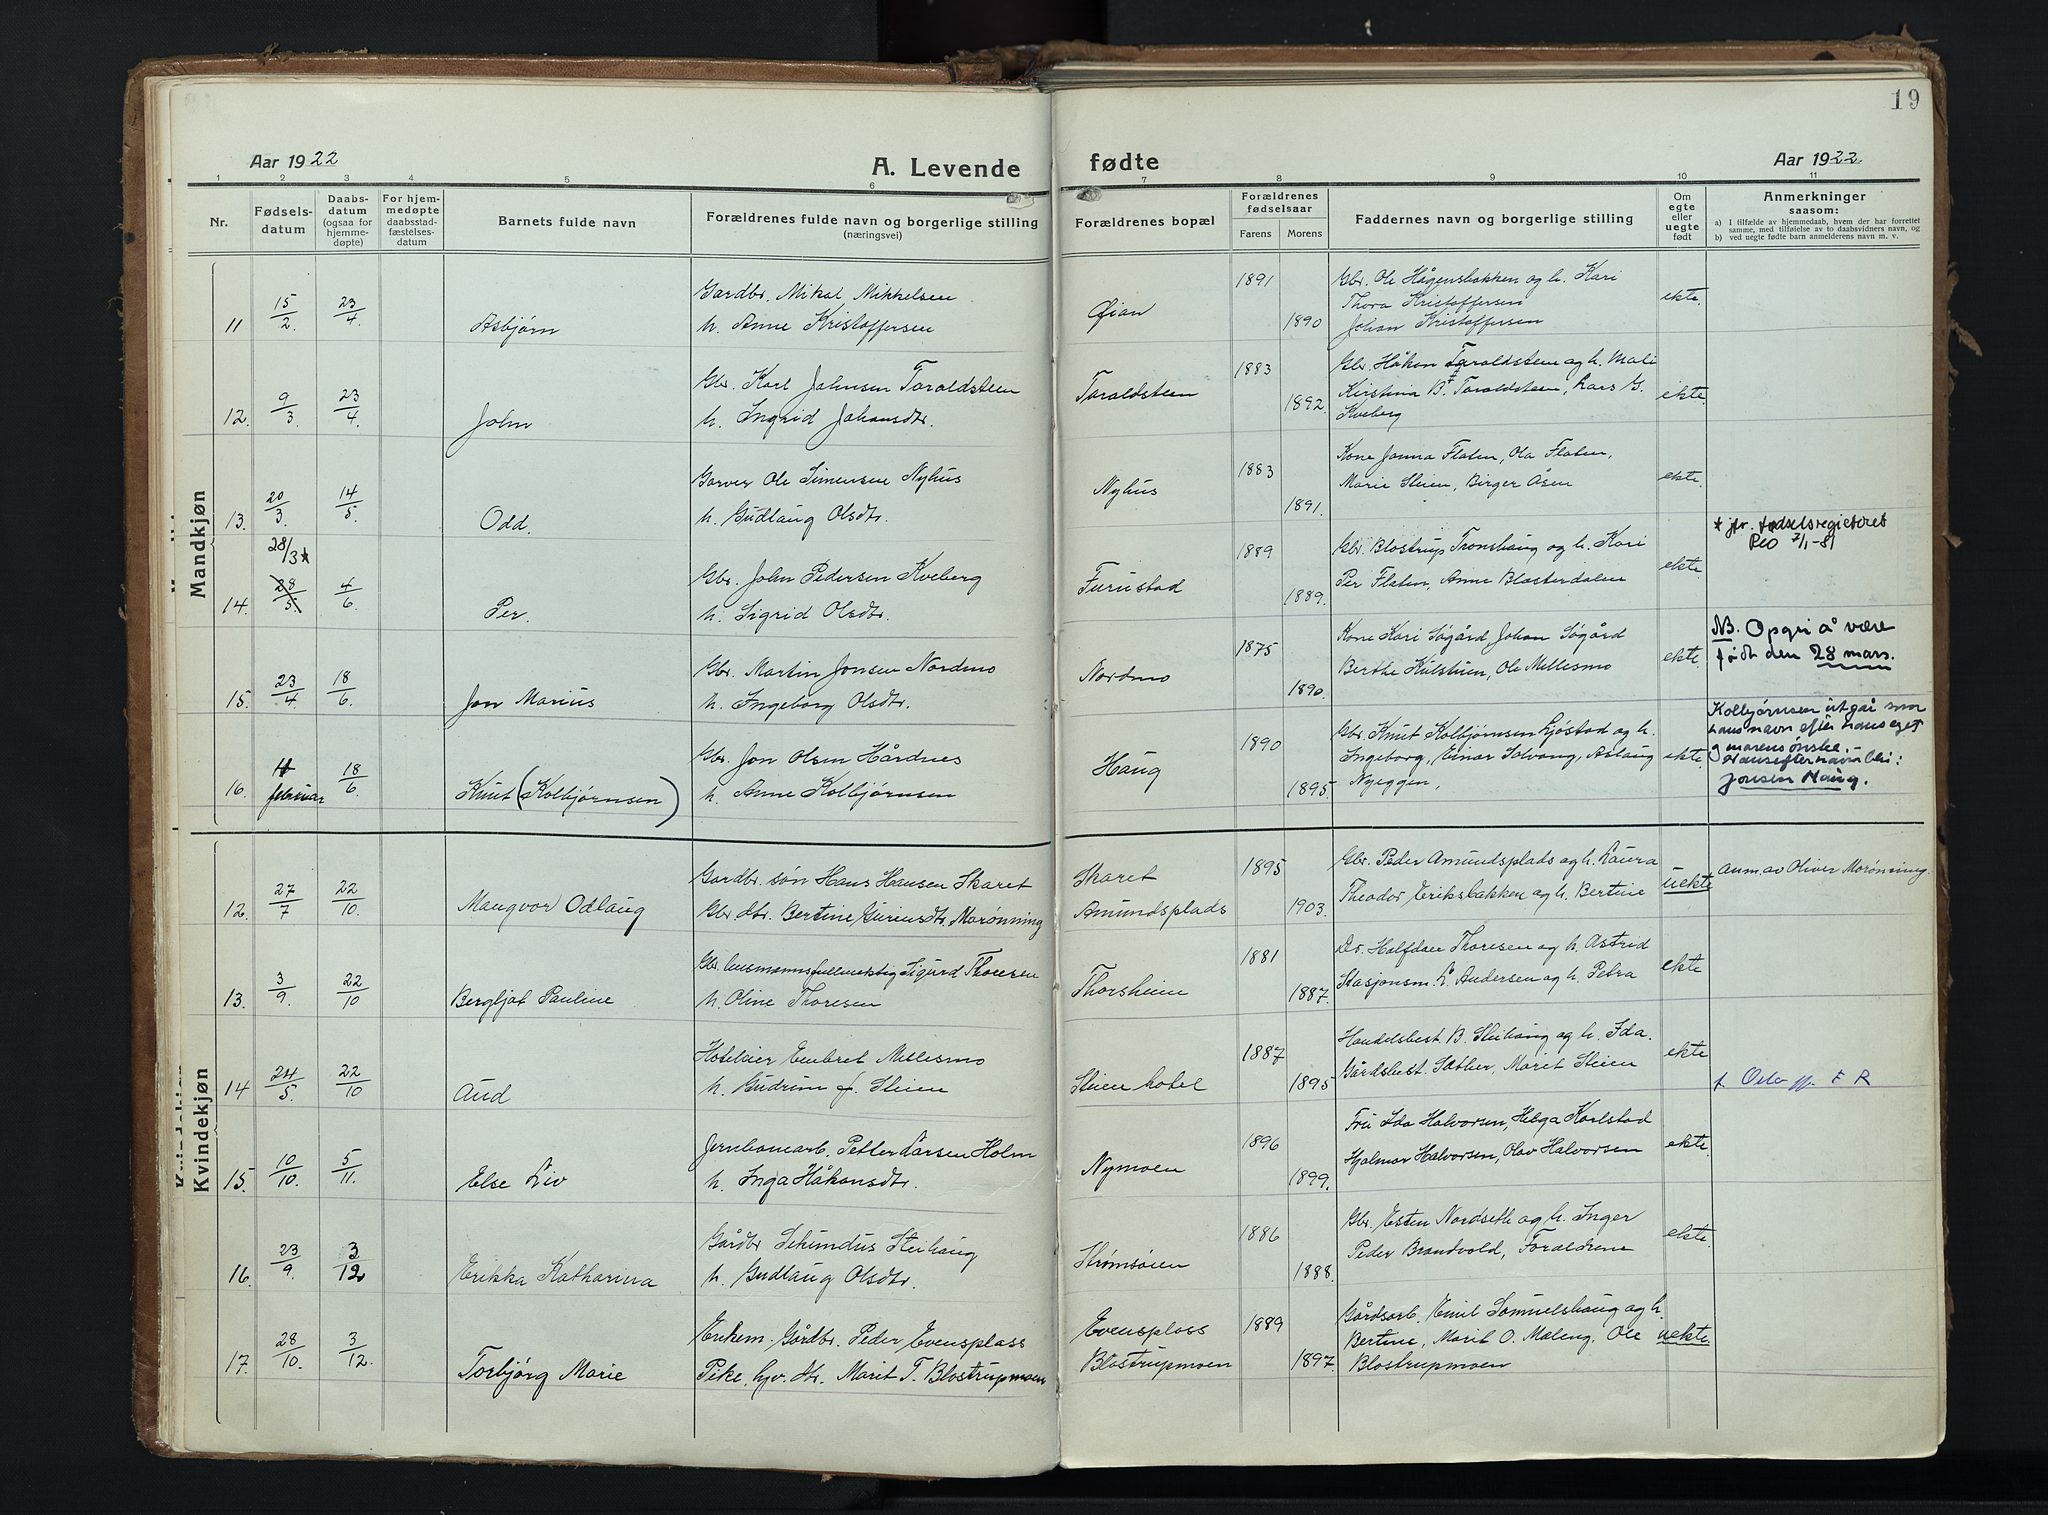 19
Aar 1922
A. Levende fødte
Aar 1922.
1 2 3 4 5 6 7 8 9 10 11
Nr.
Fødselsdatum
Daabsdatum (ogsaa for hjemmedøpte)
For hjemmedøpte daabsstadfæstelsesdatum
Barnets fulde navn
Forældrenes fulde navn og borgerlige stilling (næringsvei)
Forældrenes bopæl
Forældrenes fødselsaar
Farens Morens
Faddernes navn og borgerlige stilling
Om egte eller uegte født
Anmerkninger saasom:
a) I tilfælde av hjemmedaab, hvem der har forrettet samme, med tilføielse av to daabsvidners navn, og
b) ved uegte fødte barn anmelderens navn m. v.
Mandkjøn
11 15/2 23/4 Asbjørn
Gardbr. Mikal Mikkelsen
h. Anne Kristoffersen
Øian 1891 1890
Gbr. Ole Hågensbakken og h. Kari
Thora Kristoffersen
Johan Kristoffersen
ekte.
12. 9/3 23/4 John
Gbr. Karl Johnsen Taraldsteen
h. Ingrid Johansdtr.
Taraldsteen 1883 1892.
Gbr. Håkon Taraldsteen og h. Mali
Kirstina B. Taraldsteen, Lars G.
Kveberg
ekte.
13. 20/3. 14/5 Odd.
Garver Ole Simensen Nyhus
h. Gudlaug Olsdtr.
Nyhus 1883 1891.
Kone Janna Flaten, Ola Flaten,
Marie Steien, Birger Åsen
ekte.
14. 28/3* 28/5. 4/6 Per.
Gbr. John Pedersen Kveberg
h. Sigrid Olsdtr.
Furustad 1889 1889.
Gbr. Blostrup Tronshaug og h. Kari
Per Flaten, Anne Blæsterdalen
ekte.
* jfr. fødselsregisteret
7/1-81
15. 23/4 18/6. Jon Marius
Gbr. Martin Jonsen Nordmo
h. Ingeborg Olsdtr.
Nordmo 1875 1890.
Kone Kari Søgård, Johan Søgård
Berthe Kulstuen, Ole Millesmo
ekte.
NB. Opgri å være
født den 28 mars.
16. februar 18/6. Knut (Kolbjørnsen)
Gbr. Jon Olsen Hårdnes
h. Anne Kolbjørnsen
Haug 1890 1895.
Gbr. Knut Kolbjørnsen Ljøstad og h.
Ingeborg, Einar Solvang, Aslaug
Nyeggen,
ekte.
Kolbjørnsen utgår som
hans navn efter hans eget
og morens ønske.
Hans efternavn blir:
Jonsen Haug.
Kvindekjøn
12. 27/7 22/10. Mangvor Odlaug
Gardbr. søn Hans Hansen Skaret
Gbr. dtr. Bertine Guriusdtr. Morønning
Skaret
Amundsplads
1895 1903.
Gbr. Peder Amundsplads og h. Laura
Theodor Eriksbakken og h. Bertine
uekte
anm. av Oliver Morønning.
13. 3/9. 22/10 Bergljot Pauline
Gbr. husmannsfullmektig Sigurd Thoresen
h. Oline Thoresen
Thorsheim 1881 1887.
Dr. Halfdan Thoresen og h. Astrid
Stasjonsm. L. Andersen og h. Petra
ekte
14 24/5. 22/10 Aud
Hoteleier Embret Millesmo
h. Gudrun f. Steien
Steien hotel 1887 1895
Handelsbest. B. Steihaug og h. Ida.
Gårdsbest. Sæther, Marit Steien
ekte
15. 10/10. 5/11. Else Liv
Jernbanearb. Petter Larsen Holm
h. Inga Håkonsdtr.
Nymoen 1896 1899.
Fru Ida Halvorsen, Helga Karlstad
Hjalmar Halvorsen, Olav Halvorsen
ekte.
16. 23/9. 3/12 Erikka Katharina
Gårdbr. Sekundus Steihaug
h. Gudlaug Olsdtr.
Strømsøien 1886 1888.
Gbr. Esten Nordseth og h. Inger
Peder Brandvold, Foraldrene
ekte.
17. 28/10. 3/12. Torbjørg Marie
Enkem. Gårdbr. Peder Evensplass
Pike, hjv. dtr. Marit T. Blostrupmoen
Evensplass
Blostrupmoen
1889 1897.
Gårdsarb. Emil Samuelshaug og h.
Bertine, Marit O. Maleng, Ole
Blostrupmoen
uekte.